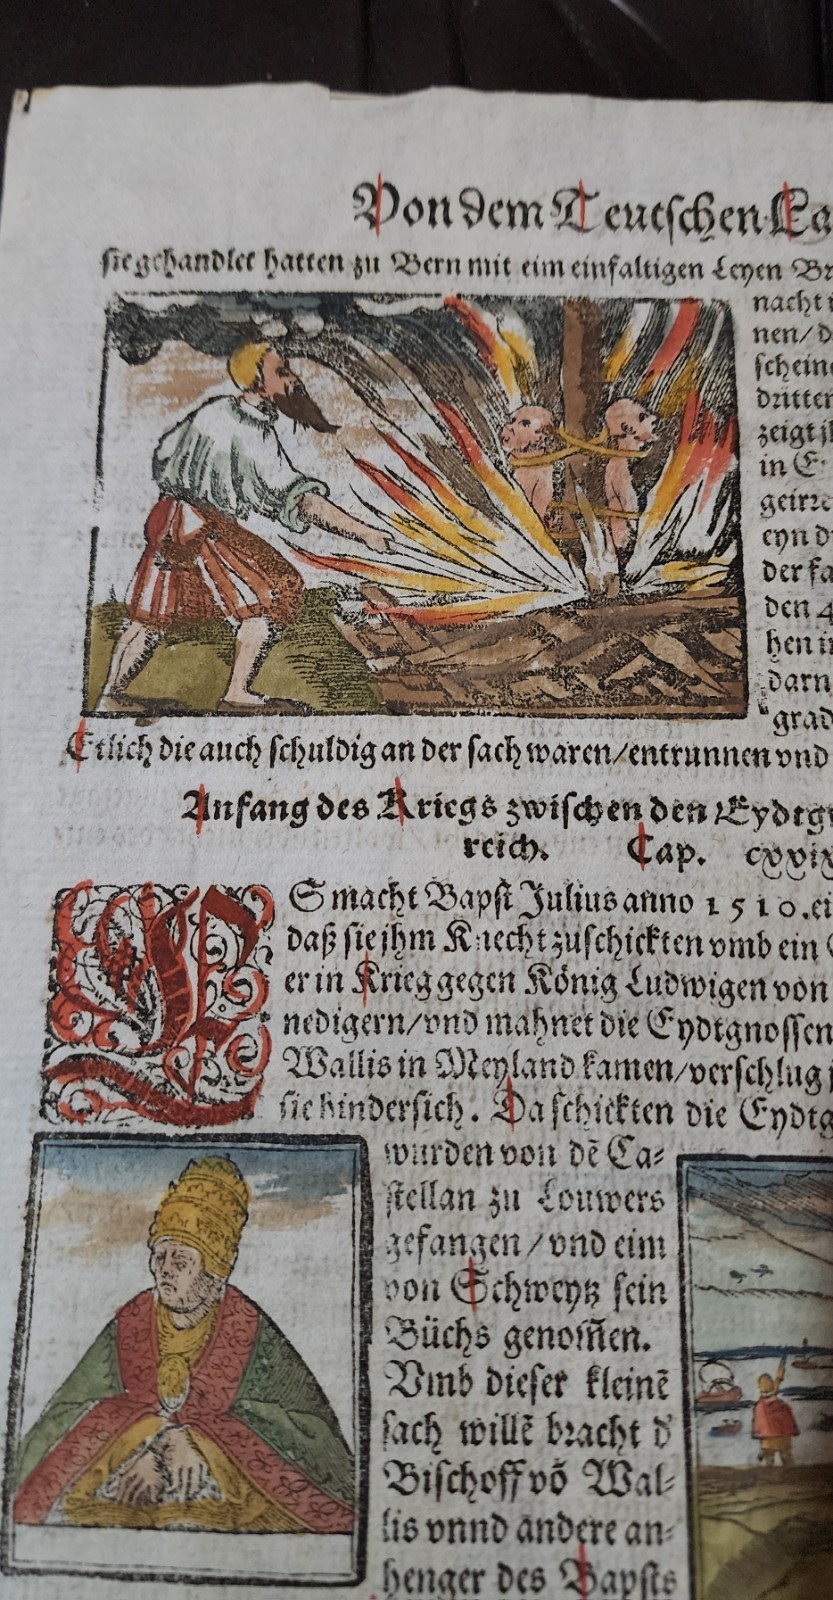 Von dem Teutschen La
sie gehandlet hatten zu Bern mit eim einfaltigen Leyen Br
nacht
nen/ d
schein
dritten
zeigt jh
in E
geirre
eyn d
der fa
den 4
hen in
darn
grad
Etlich die auch schuldig an der sach waren/entrunnen vnd
Anfang des Kriegs zwischen den Eydtg
reich. Cap. cxxix
ES macht Bapst Julius anno 1510.ei
daß sie jhm Knecht zuschickten vmb ein
er in Krieg gegen König Ludwigen von
nedigern/vnd mahnet die Eydtgnossen
Wallis in Meyland kamen/verschlug
sie hindersich. Da schickten die Eydtg
wurden von dē Ca⸗
stellan zu Louwers
gefangen/vnd eim
von Schweytz sein
Büchs genom̃en.
Vmb dieser kleinē
sach willē bracht d'
Bischoff vō Wal⸗
lis vnnd andere an⸗
henger des Bapsts